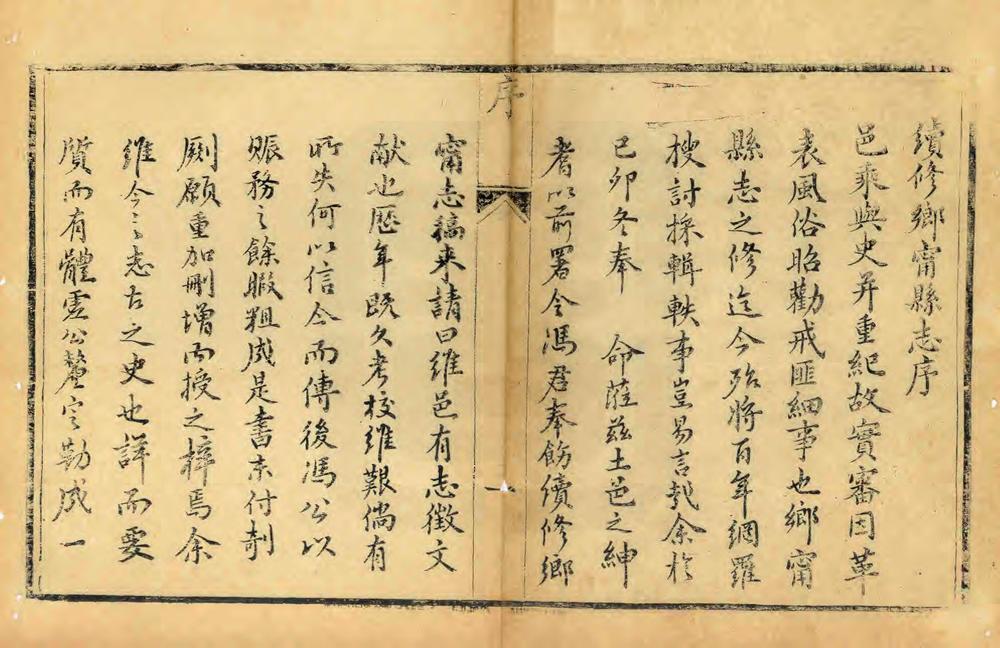 續修鄉甯縣志序
邑乘與史并重紀故實審因革
表風俗昭勸戒匪細事也鄉甯
縣志之修迄今殆將百年網羅
搜討採輯軼事豈易言哉余於
己卯冬奉 命蒞茲土邑之紳
耆以前署令馮君奉飭續修鄉
序
一
甯志稿来請曰維邑有志徵文
献也歷年既久考校維艱倘有
所失何以信今而傳後馮公以
賑務之餘暇粗成是書未付剞
劂願重加刪增而授之梓焉余
維今之志古之史也詳而要
質而有體虛公釐定勒成一